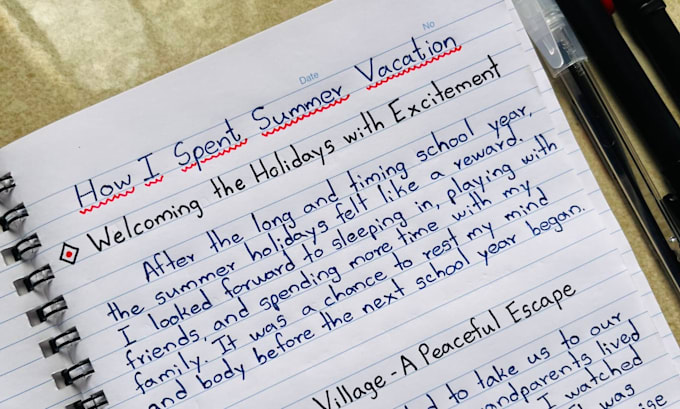 Date
No
How I Spent Summer Vacation
Welcoming the Holidays with Excitement
After the long and timing school year,
the summer holidays felt like a reward.
I looked forward to sleeping in, playing with
friends, and spending more time with my
family. It was a chance to rest my mind
and body before the next school year began.
Village - A Peaceful Escape
to take us to our
lived
I watched
was